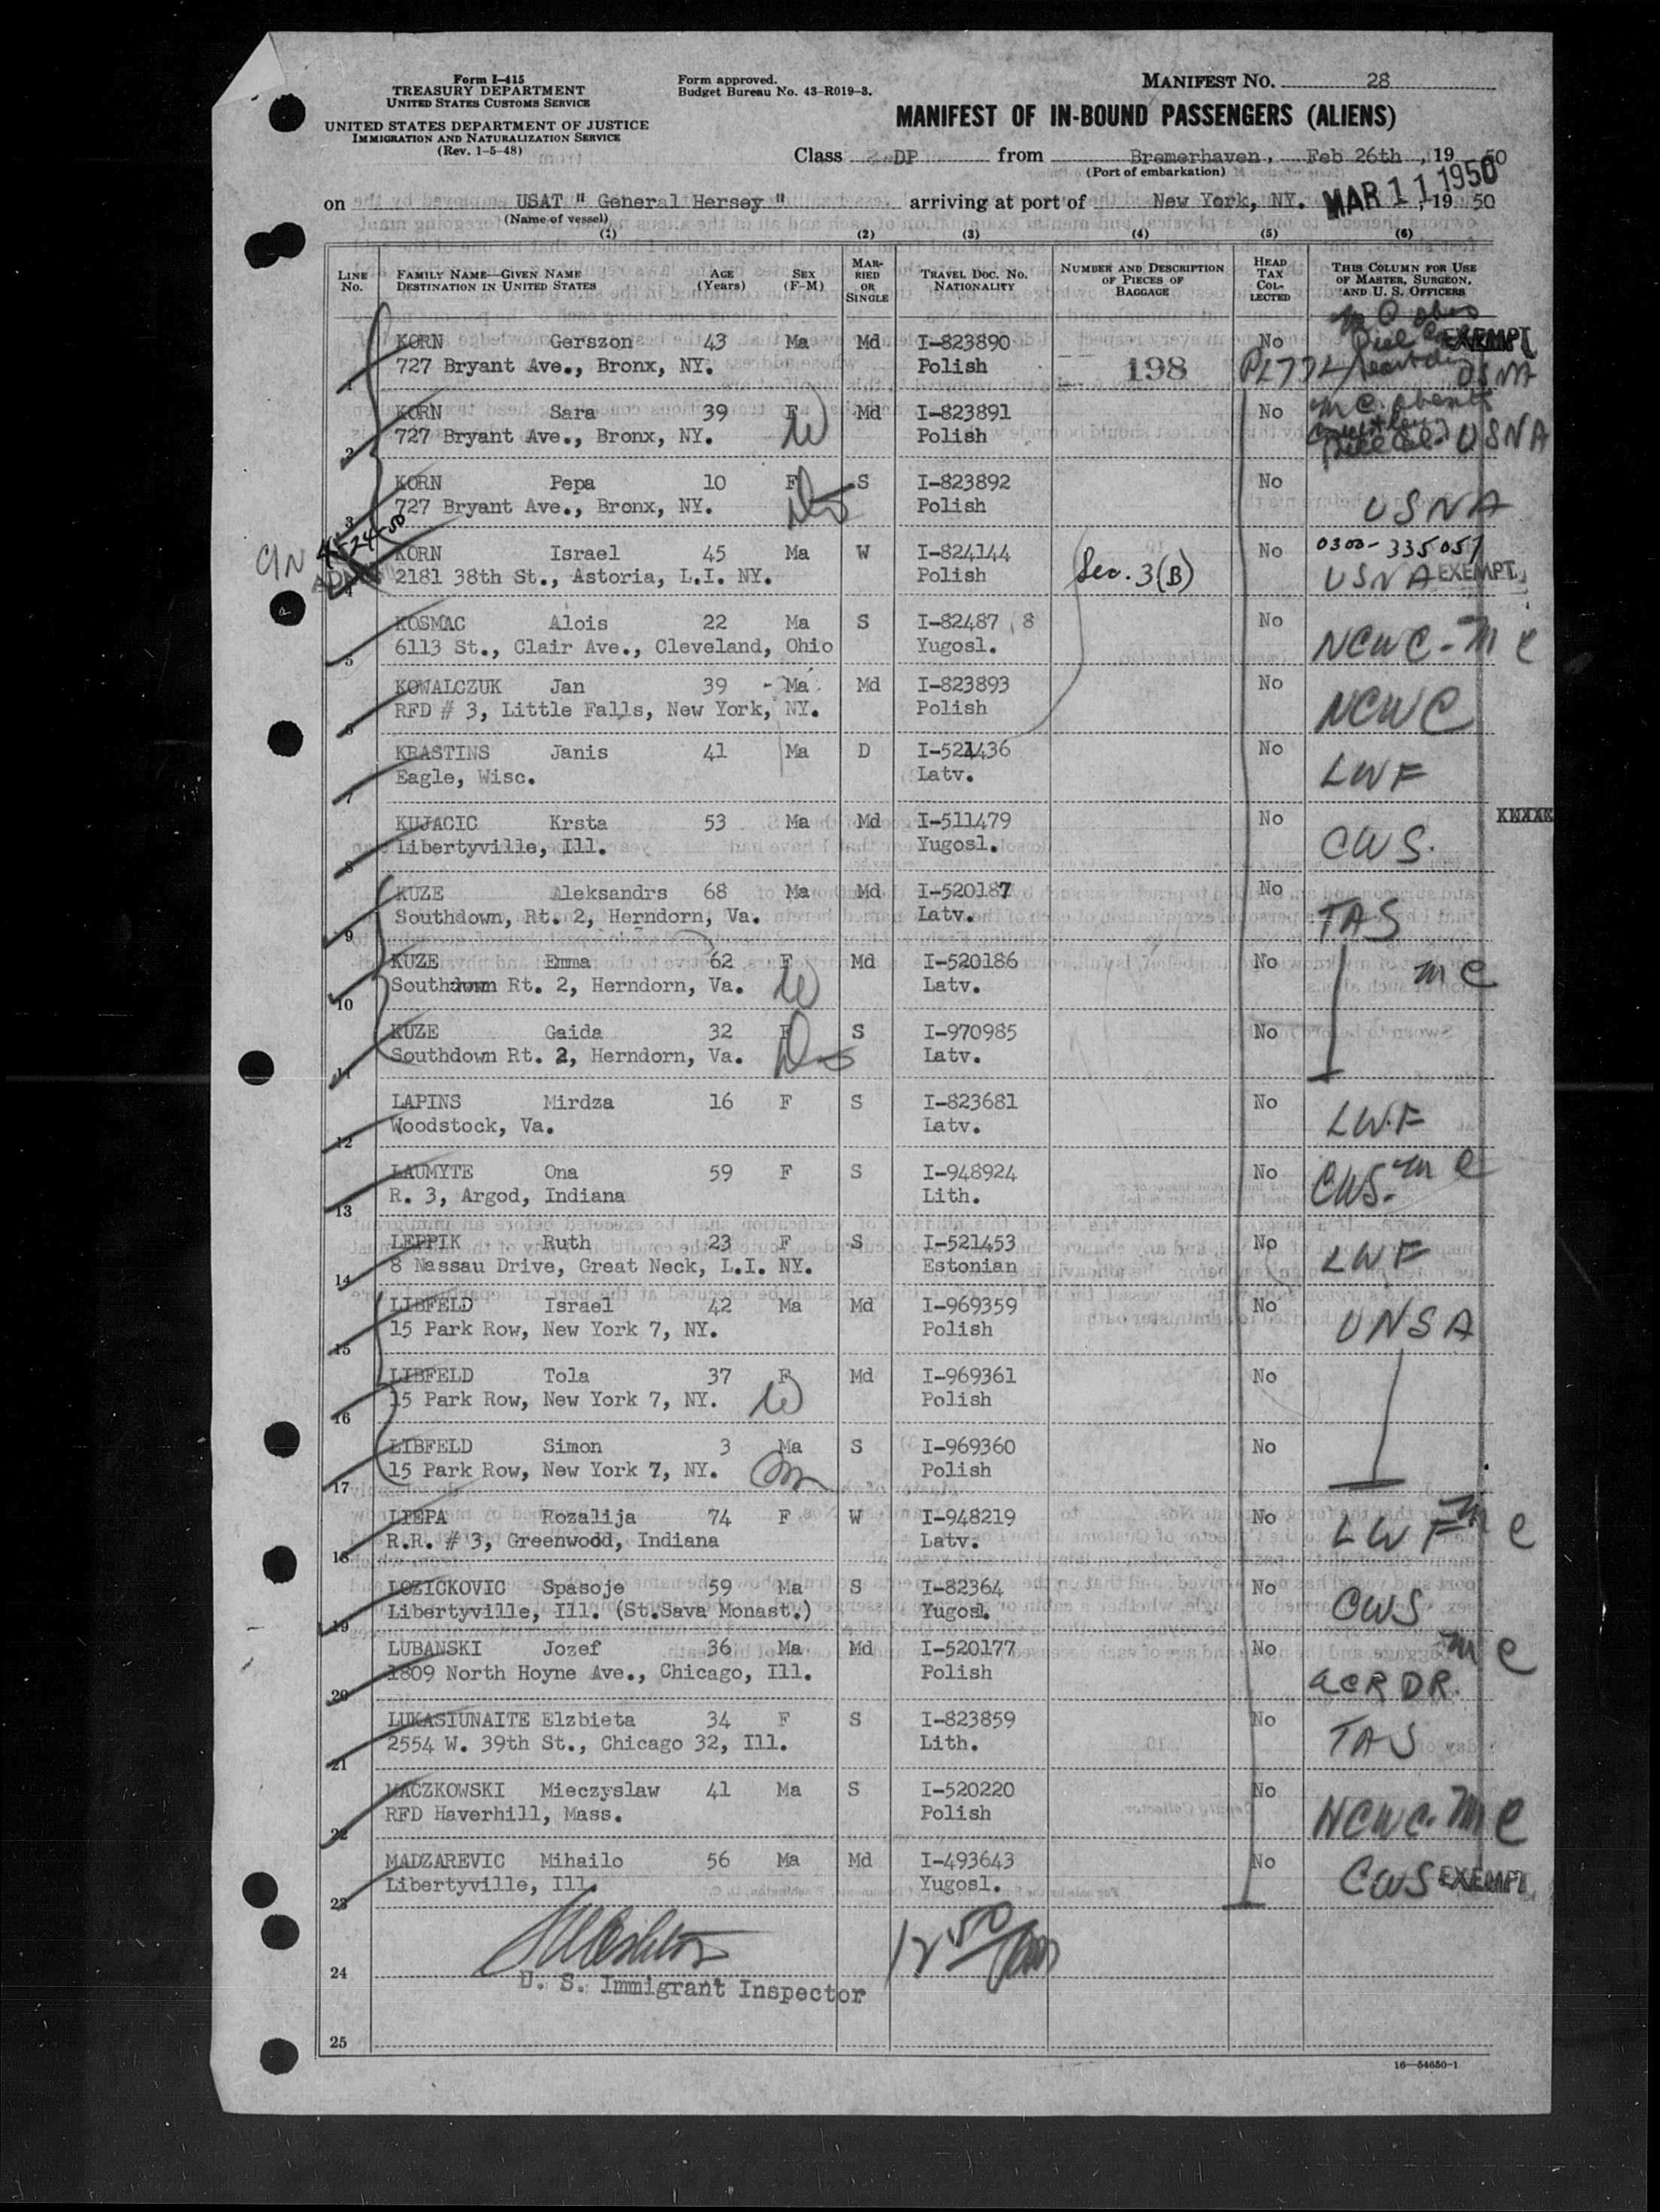 Form I-415
TREASURY DEPARTMENT
UNITED STATES CUSTOMS SERVICE
UNITED STATES DEPARTMENT OF JUSTICE
IMMIGRATION AND NATURALIZATION SERVICE
(Rev. 1-5-48)
Form approved.
Budget Bureau No. 43-R019-3.
MANIFEST NO. 28
MANIFEST OF IN-BOUND PASSENGERS (ALIENS)
Class DP from Bremerhaven, Feb 26th, 19 50
(Port of embarkation)
on USAT " General Hersey " arriving at port of New York, NY. MAR 11 1950, 19 50
(Name of vessel)
(1) (2) (3) (4) (5) (6)
LINE No. FAMILY NAME—GIVEN NAME DESTINATION IN UNITED STATES AGE (Years) SEX (F-M) MARRIED OR SINGLE TRAVEL DOC. NO. NATIONALITY NUMBER AND DESCRIPTION OF PIECES OF BAGGAGE HEAD TAX COLLECTED THIS COLUMN FOR USE OF MASTER, SURGEON, AND U. S. OFFICERS
KORN Gerszon 43 Ma Md I-823890 No EXEMPT
1 727 Bryant Ave., Bronx, NY. Polish 198 PL774 USNA
KORN Sara 39 F Md I-823891 No
2 727 Bryant Ave., Bronx, NY. W Polish USNA
KORN Pepa 10 F S I-823892 No
3 727 Bryant Ave., Bronx, NY. Polish USNA
C/N 4-24-50
KORN Israel 45 Ma W I-824144 No 0300-335057
4 2181 38th St., Astoria, L.I. NY. Polish Sec. 3(B) USNA EXEMPT
KOSMAC Alois 22 Ma S I-82487 8 No
5 6113 St., Clair Ave., Cleveland, Ohio Yugosl. NCWC-MC
KOWALCZUK Jan 39 - Ma Md I-823893 No
6 RFD # 3, Little Falls, New York, NY. Polish NCWC
KRASTINS Janis 41 Ma D I-521436 No
7 Eagle, Wisc. Latv. LWF
KUJACIC Krsta 53 Ma Md I-511479 No
8 Libertyville, Ill. Yugosl. CWS.
KUZE Aleksandrs 68 Ma Md I-520187 No
9 Southdown, Rt. 2, Herndorn, Va. Latv. TAS
KUZE Emma 62 F Md I-520186 No MC
10 Southdown Rt. 2, Herndorn, Va. W Latv.
KUZE Gaida 32 F S I-970985 No
11 Southdown Rt. 2, Herndorn, Va. Latv.
LAPINS Mirdza 16 F S I-823681 No
12 Woodstock, Va. Latv. LWF
LAUMYTE Ona 59 F S I-948924 No
13 R. 3, Argod, Indiana Lith. CWS-MC
LEPPIK Ruth 23 F S I-521453 No
14 8 Nassau Drive, Great Neck, L.I. NY. Estonian LWF
LIBFELD Israel 42 Ma Md I-969359 No
15 15 Park Row, New York 7, NY. Polish UNSA
LIBFELD Tola 37 F Md I-969361 No
16 15 Park Row, New York 7, NY. W Polish
LIBFELD Simon 3 Ma S I-969360 No
17 15 Park Row, New York 7, NY. Polish
LIEPA Rozalija 74 F W I-948219 No
18 R.R. # 3, Greenwood, Indiana Latv. LWF MC
LOZICKOVIC Spasoje 59 Ma S I-82364 No
19 Libertyville, Ill. (St.Sava Monast.) Yugosl. CWS
LUBANSKI Jozef 36 Ma Md I-520177 No MC
20 1809 North Hoyne Ave., Chicago, Ill. Polish ACRDR.
LUKASIUNAITE Elzbieta 34 F S I-823859 No
21 2554 W. 39th St., Chicago 32, Ill. Lith. TAS
MACZKOWSKI Mieczyslaw 41 Ma S I-520220 No
22 RFD Haverhill, Mass. Polish NCWC-MC
MADZAREVIC Mihailo 56 Ma Md I-493643 No
23 Libertyville, Ill. Yugosl. CWS EXEMPT
24
U. S. Immigrant Inspector
25
16—54650-1